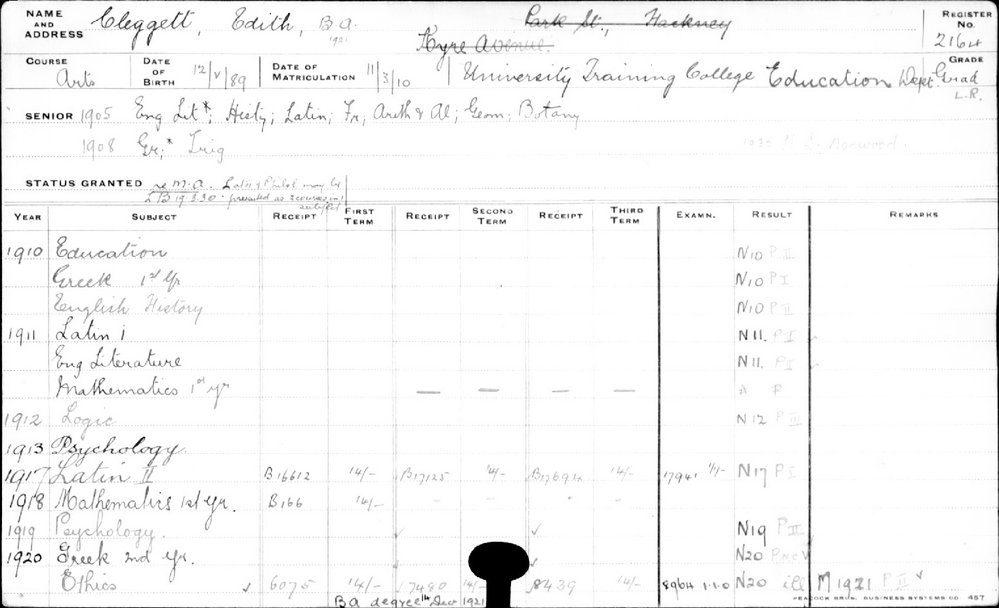 NAME AND ADDRESS Cleggett, Edith, B.A. 1921 Park St., Hackney REGISTER No. 2164
Kyre Avenue.
COURSE Arts DATE OF BIRTH 12/V/89 DATE OF MATRICULATION 11/3/10 University Training College Education Dept. GRADE Grad
L.R.
SENIOR 1905 Eng Lit*; Histy; Latin; Fr; Arith & Al; Geom; Botany
1908 Gr;* Trig Norwood.
STATUS GRANTED re M.A. Latin & Philol may be
presented as 2 courses in 1 subject
YEAR SUBJECT RECEIPT FIRST TERM RECEIPT SECOND TERM RECEIPT THIRD TERM EXAMN. RESULT REMARKS
1910 Education N10 P II
Greek 1st Yr N10 P I
English History N10 P II
1911 Latin i N11. P I
Eng Literature N11. P I
Mathematics 1st yr — — —
1912 Logic N12 P III
1913 Psychology
1917 Latin II B16612 14/- B17125 14/- B17694 14/- 17941 N17 P I
1918 Mathematics 1st Yr. B166 14/- - - - -
1919 Psychology. ✓ ✓ N19 P II
1920 Greek 2nd Yr. N20
Ethics ✓ 6075 14/- 7490 14/- 8439 14/- 8964 1.1.0 N20 ill M 1921 P II ✓
BA degree 14 Dec 1921
PEACOCK BROS. BUSINESS SYSTEMS CO 457